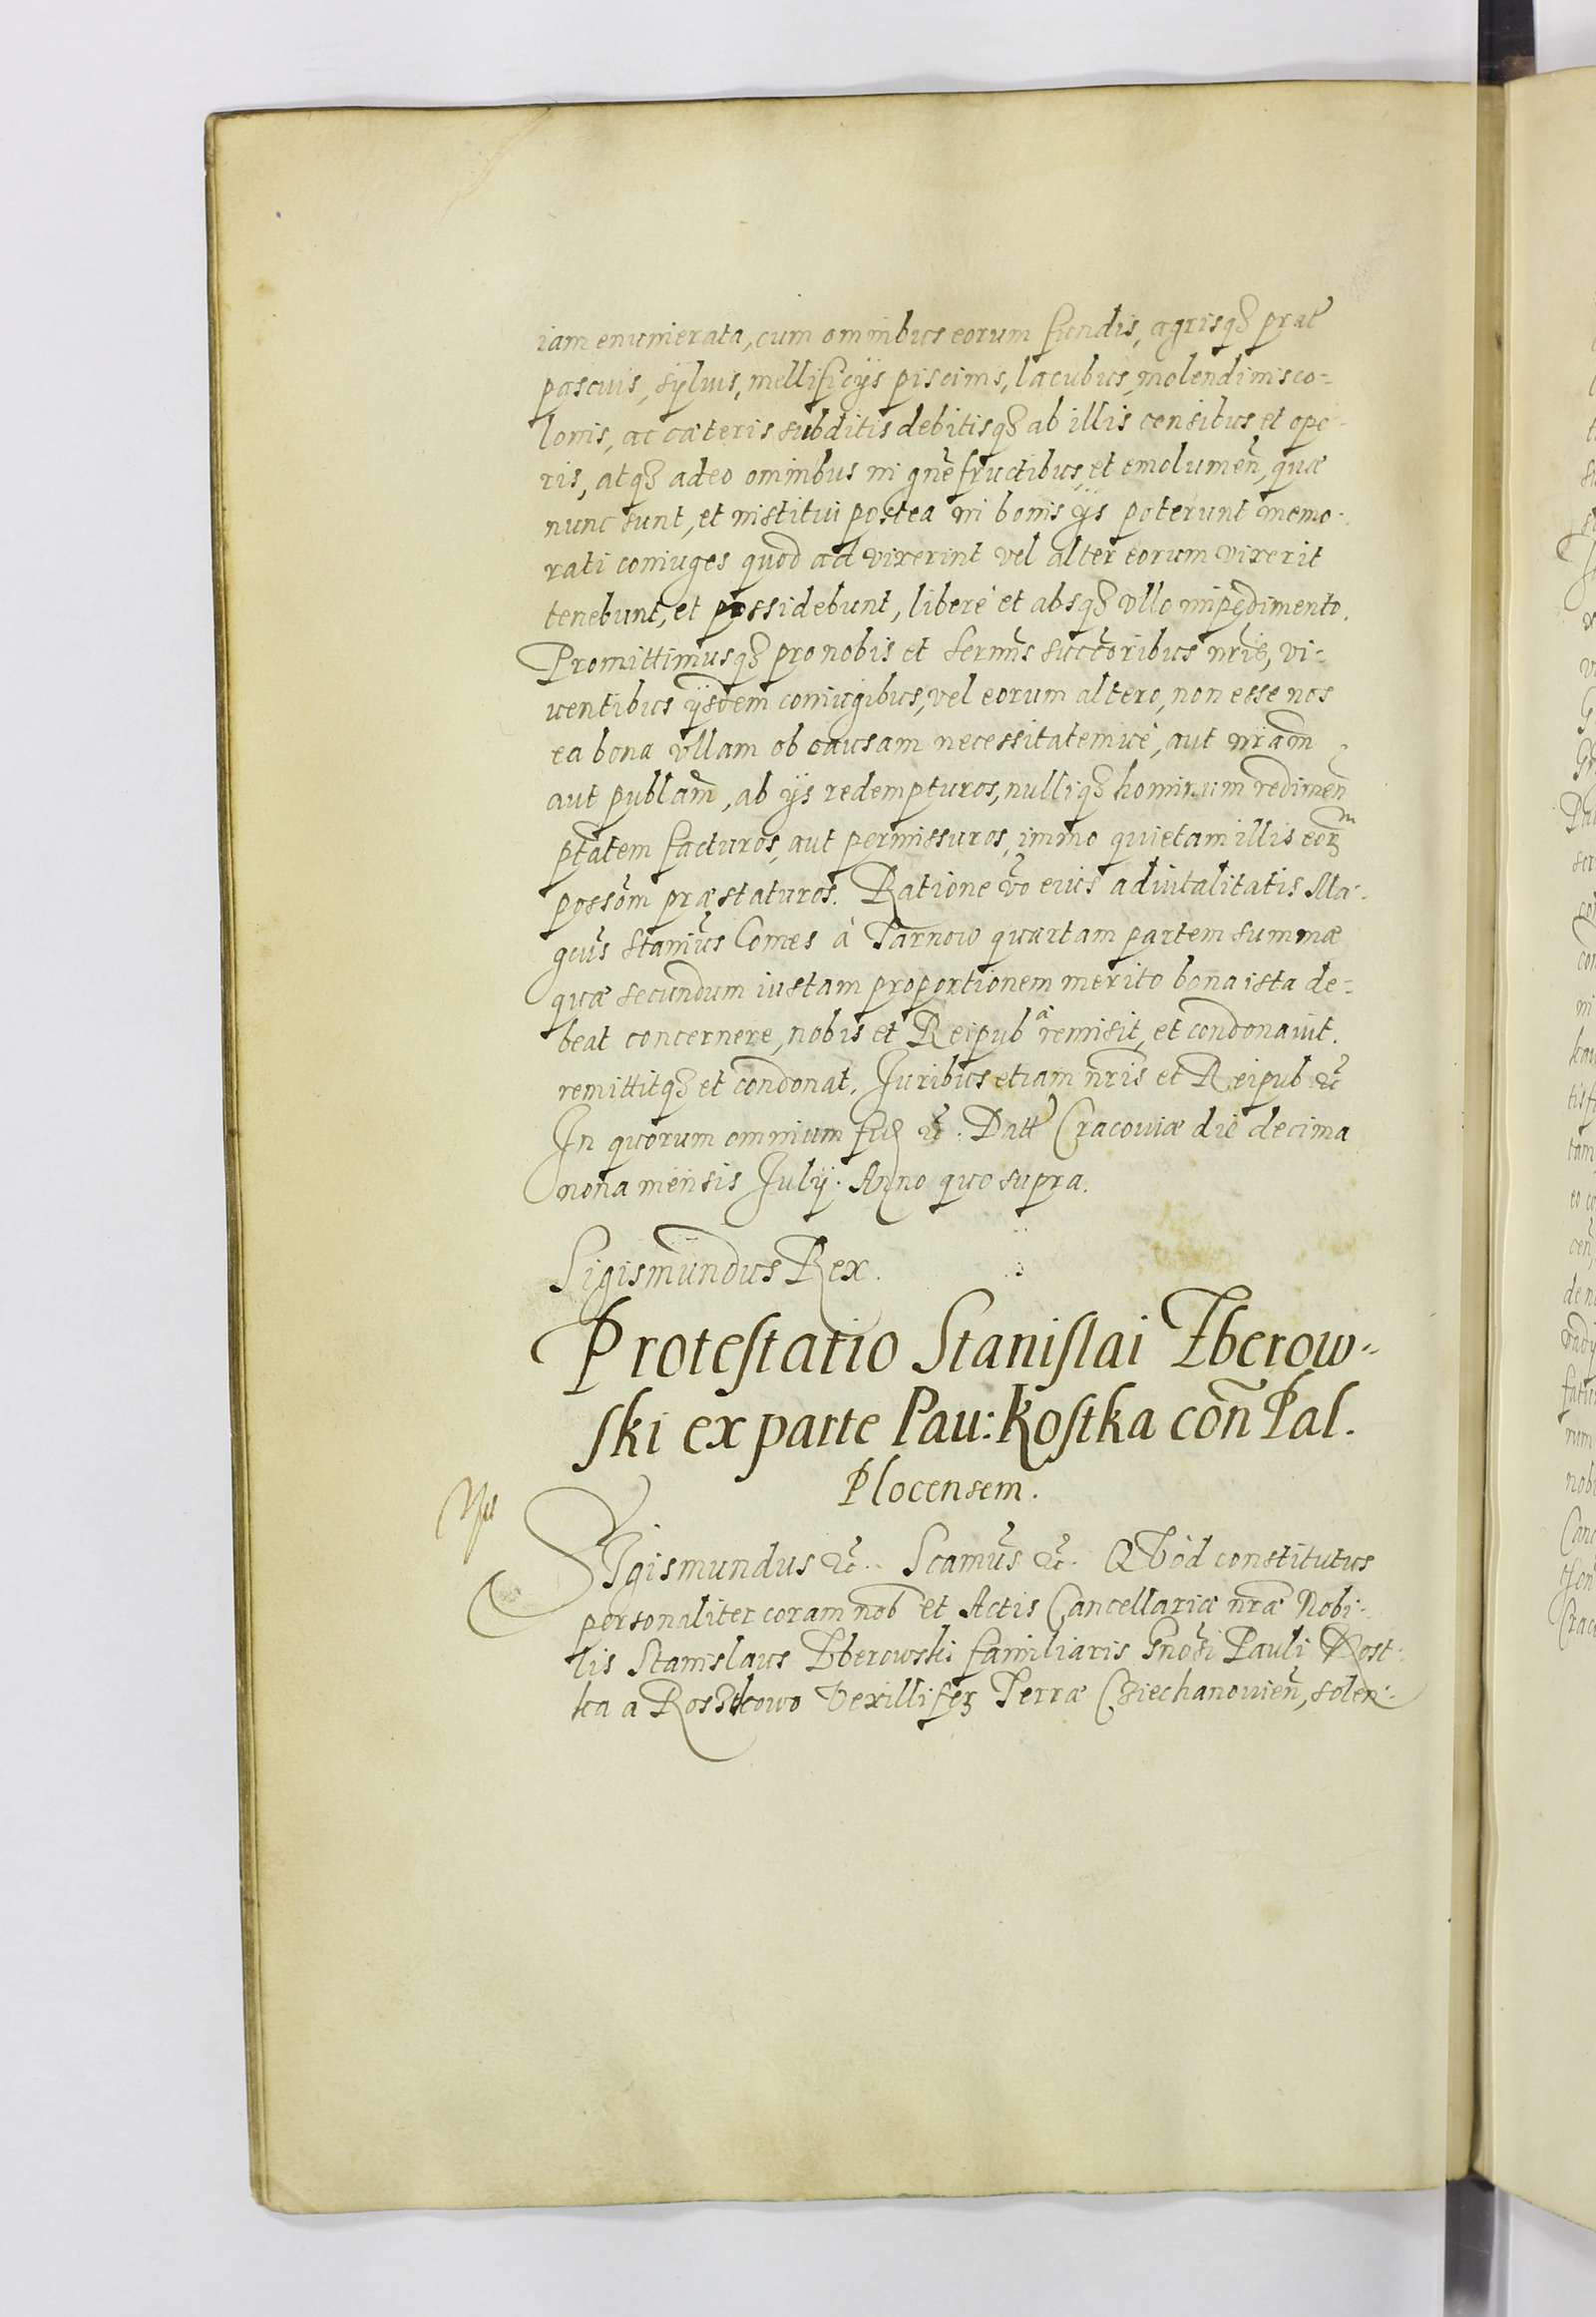 iam enumerata, cum omnibus eorum fundis, agrisq₃ prat
pascuis, sylvis, mellificijs piscinis, lacubus, molendinis co-
lonis, ac cæteris subditis debitisq₃ ab illis censibus et ope-
ris, atq₃ adeo omnibus in gñe fructibus, et emolumeñ, quæ
nunc sunt, et institui postea in bonis ijs poterunt memo-
rati coniuges quod ad vixerint vel alter eorum vixerit
tenebunt, et possidebunt, liberè et absq₃ vllo impedimento.
Promittimusq₃ pro nobis et sermis succoribus nris, vi-
uentibus ijsdem coniugibus, vel eorum altero, non esse nos
ea bona vllam ob causam necessitatemuè, aut nram
aut publam, ab ijs redempturos, nulliq₃ hominum redimen
ptatem facturos, aut permissuros, immo quietam illis eor
possom præstaturos. Ratione vo eius aduitalitatis Ma-
gcus Stanius Comes à Tarnow quartam partem summæ
quæ secundum iustam proportionem merito bona ista de-
beat concernere, nobis et Reipub remisit, et condonauit.
remittitq₃ et condonat. Juribus etiam nris et Reipub &c
In quorum omnium fid &c. Datt Cracouiæ die decima
nona mensis July. Anno quo supra.
Sigismundus Rex.
Protestatio Stanislai Zberow-
ski ex parte Pau: Kostka con Pal.
Plocensem.
SIgismundus &c. Scamus &c. QVod constitutus
personaliter coram nob et Actis Cancellariæ nræ Nobi-
lis Stanislaus Zberowski familiaris Gnosi Pauli Kost-
ka a Rostkowo Vexillifer Terræ Cziechanouien, solen-